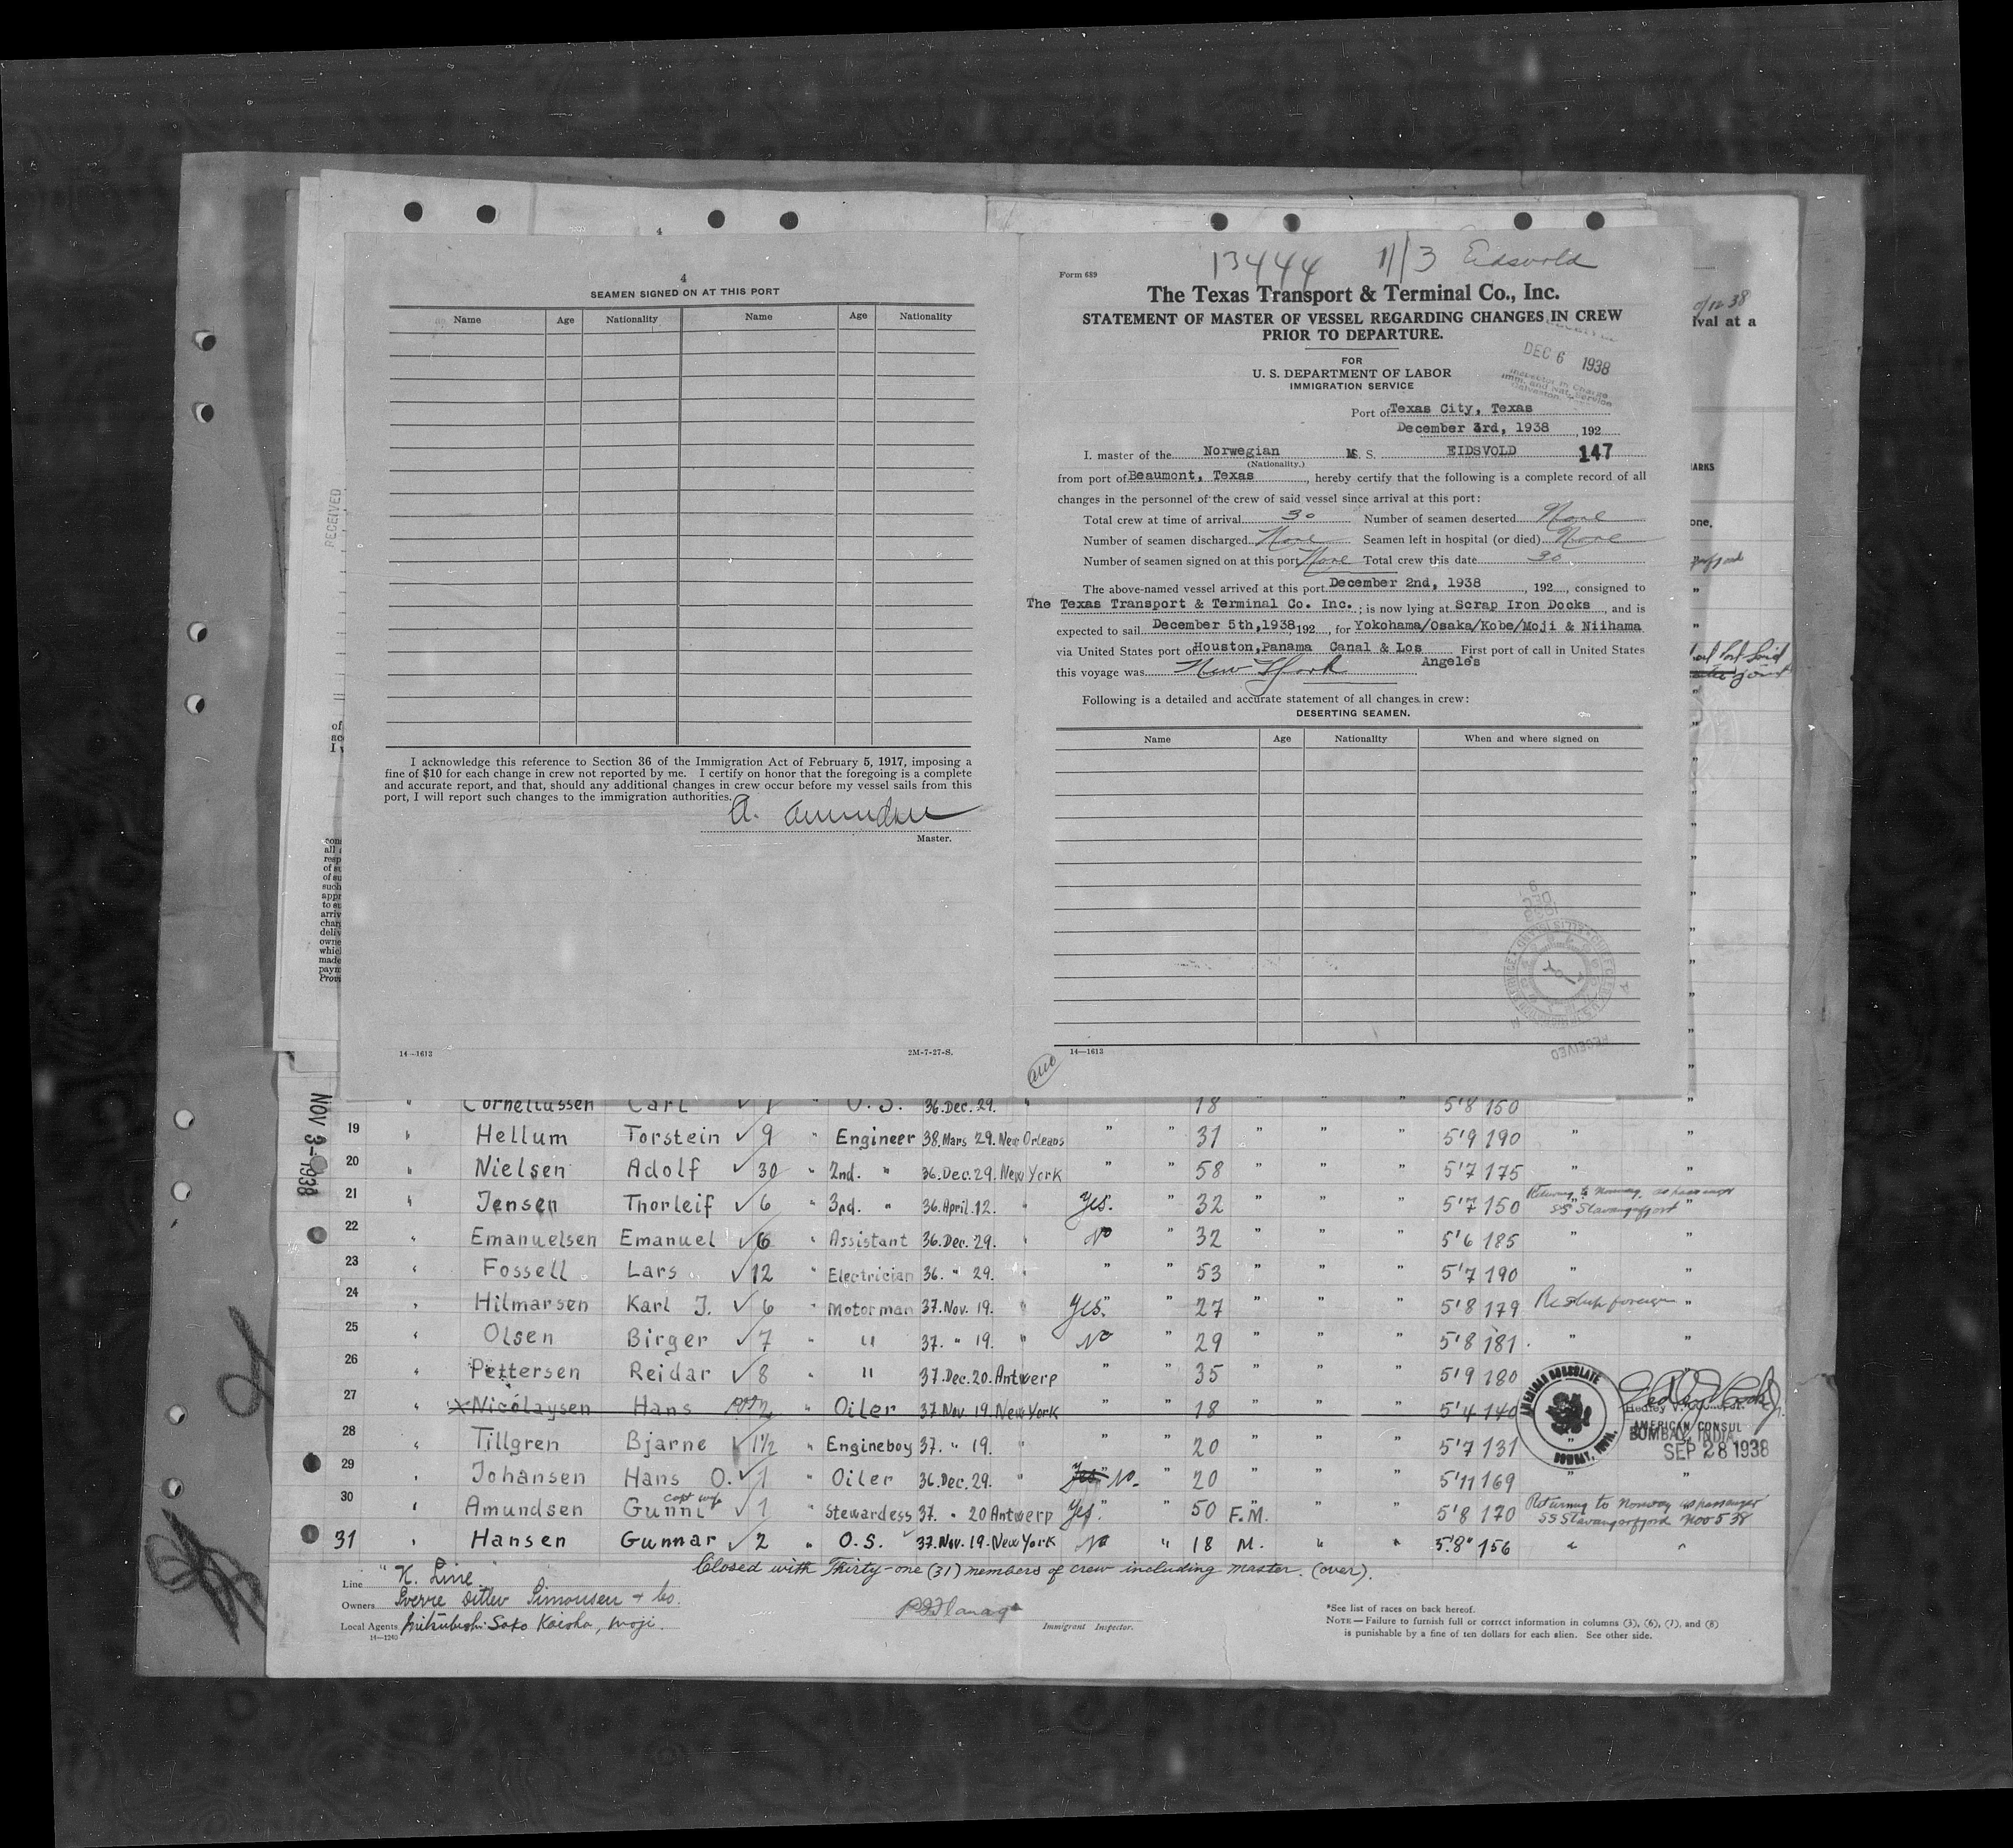 4
4
SEAMEN SIGNED ON AT THIS PORT
Name Age Nationality Name Age Nationality
I acknowledge this reference to Section 36 of the Immigration Act of February 5, 1917, imposing a
fine of $10 for each change in crew not reported by me. I certify on honor that the foregoing is a complete
and accurate report, and that, should any additional changes in crew occur before my vessel sails from this
port, I will report such changes to the immigration authorities.
Master.
14—1613 2M-7-27-S.
13444 11/3 Eidsvold
Form 689
The Texas Transport & Terminal Co., Inc.
STATEMENT OF MASTER OF VESSEL REGARDING CHANGES IN CREW
PRIOR TO DEPARTURE.
FOR
U. S. DEPARTMENT OF LABOR
IMMIGRATION SERVICE
DEC 6 1938
Inspector in Charge
Imm. and Nat. Service
Galveston
Port of Texas City, Texas
December 3rd, 1938, 192
I. master of the Norwegian M. S. EIDSVOLD 147
(Nationality.)
from port of Beaumont, Texas, hereby certify that the following is a complete record of all
changes in the personnel of the crew of said vessel since arrival at this port:
Total crew at time of arrival 30 Number of seamen deserted None
Number of seamen discharged None Seamen left in hospital (or died) None
Number of seamen signed on at this port None Total crew this date 30
The above-named vessel arrived at this port December 2nd, 1938, 192, consigned to
The Texas Transport & Terminal Co. Inc.; is now lying at Scrap Iron Docks, and is
expected to sail December 5th, 1938, 192, for Yokohama/Osaka/Kobe/Moji & Niihama
via United States port of Houston, Panama Canal & Los Angeles First port of call in United States
this voyage was New York
Following is a detailed and accurate statement of all changes in crew:
DESERTING SEAMEN.
Name Age Nationality When and where signed on
RECEIVED
14—1613
RECEIVED
ival at a
ARKS
one.
NOV 3-1938
" Corneliussen Carl ✓ 1 " O.S. 36.Dec.29. " 18 " " " 5'8 150 "
19 " Hellum Torstein ✓ 9 " Engineer 38.Mars 29. New Orleans " " 31 " " " 5'9 190 " "
20 " Nielsen Adolf ✓ 30 " 2nd. " 36.Dec.29. New York " " 58 " " " 5'7 175 " "
21 " Jensen Thorleif ✓ 6 " 3rd. " 36.April.12. " Yes. " 32 " " " 5'7 150 Returning to Norway as passenger SS Stavangerfjord "
22 " Emanuelsen Emanuel ✓ 6 " Assistant 36.Dec.29. " No " 32 " " " 5'6 185 " "
23 " Fossell Lars ✓ 12 " Electrician 36. " 29. " " " 53 " " " 5'7 190 " "
24 " Hilmarsen Karl J. ✓ 6 " Motorman 37.Nov.19. " Yes. " 27 " " " 5'8 179 Reship foreign "
25 " Olsen Birger ✓ 7 " " 37. " 19. " No " 29 " " " 5'8 181. " "
26 " Pettersen Reidar ✓ 8 " " 37.Dec.20. Antwerp " " 35 " " " 5'9 180 "
27 " X Nicolaysen Hans Oiler 37 Nov 19. New York " " 18 " " " 5'4 140
28 " Tillgren Bjarne ✓ 1½ " Engineboy 37. " 19. " " " 20 " " " 5'7 131 "
29 " Johansen Hans O. ✓ 1 " Oiler 36.Dec.29. " Yes No. " 20 " " " 5'11 169 " "
30 " Amundsen Gunni Capt wife ✓ 1 " Stewardess 37. " 20 Antwerp Yes. " 50 F.M. " " " 5'8 170 Returning to Norway as passenger SS Stavangerfjord Nov 5 38
31 " Hansen Gunnar ✓ 2 " O.S. 37.Nov.19. New York No " 18 M. " " 5'8" 156 " "
AMERICAN CONSULATE
BOMBAY, INDIA.
AMERICAN CONSUL
BOMBAY, INDIA
SEP 28 1938
Closed with Thirty-one (31) members of crew including master. (over).
Line "K. Line"
Owners Sverre Ditlev Simonsen & Co.
Local Agents Mitsubishi Soko Kaisha, Moji.
14—1240
Immigrant Inspector.
*See list of races on back hereof.
NOTE—Failure to furnish full or correct information in columns (5), (6), (7), and (8)
is punishable by a fine of ten dollars for each alien. See other side.